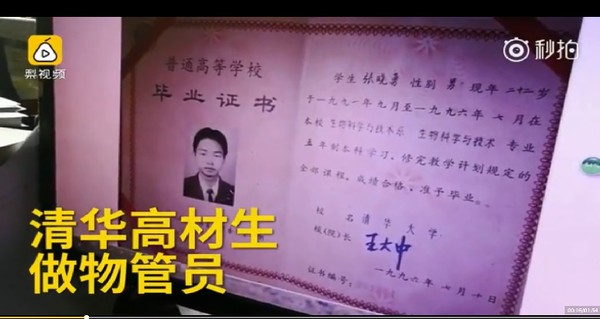 梨视频
秒拍
普通高等学校
毕业证书
学生 张晓勇 性别 男 现年 二十二岁
于一九九一年九月至一九九六年 七月在
本校 生物科学与技术系 生物科学与技术 专业
五年制本科学习,修完教学计划规定的
全部课程,成绩合格,准予毕业。
校 名 清华大学
校(院)长 王大中
一九九六年 七月 十日
证书编号:
清华高材生
做物管员